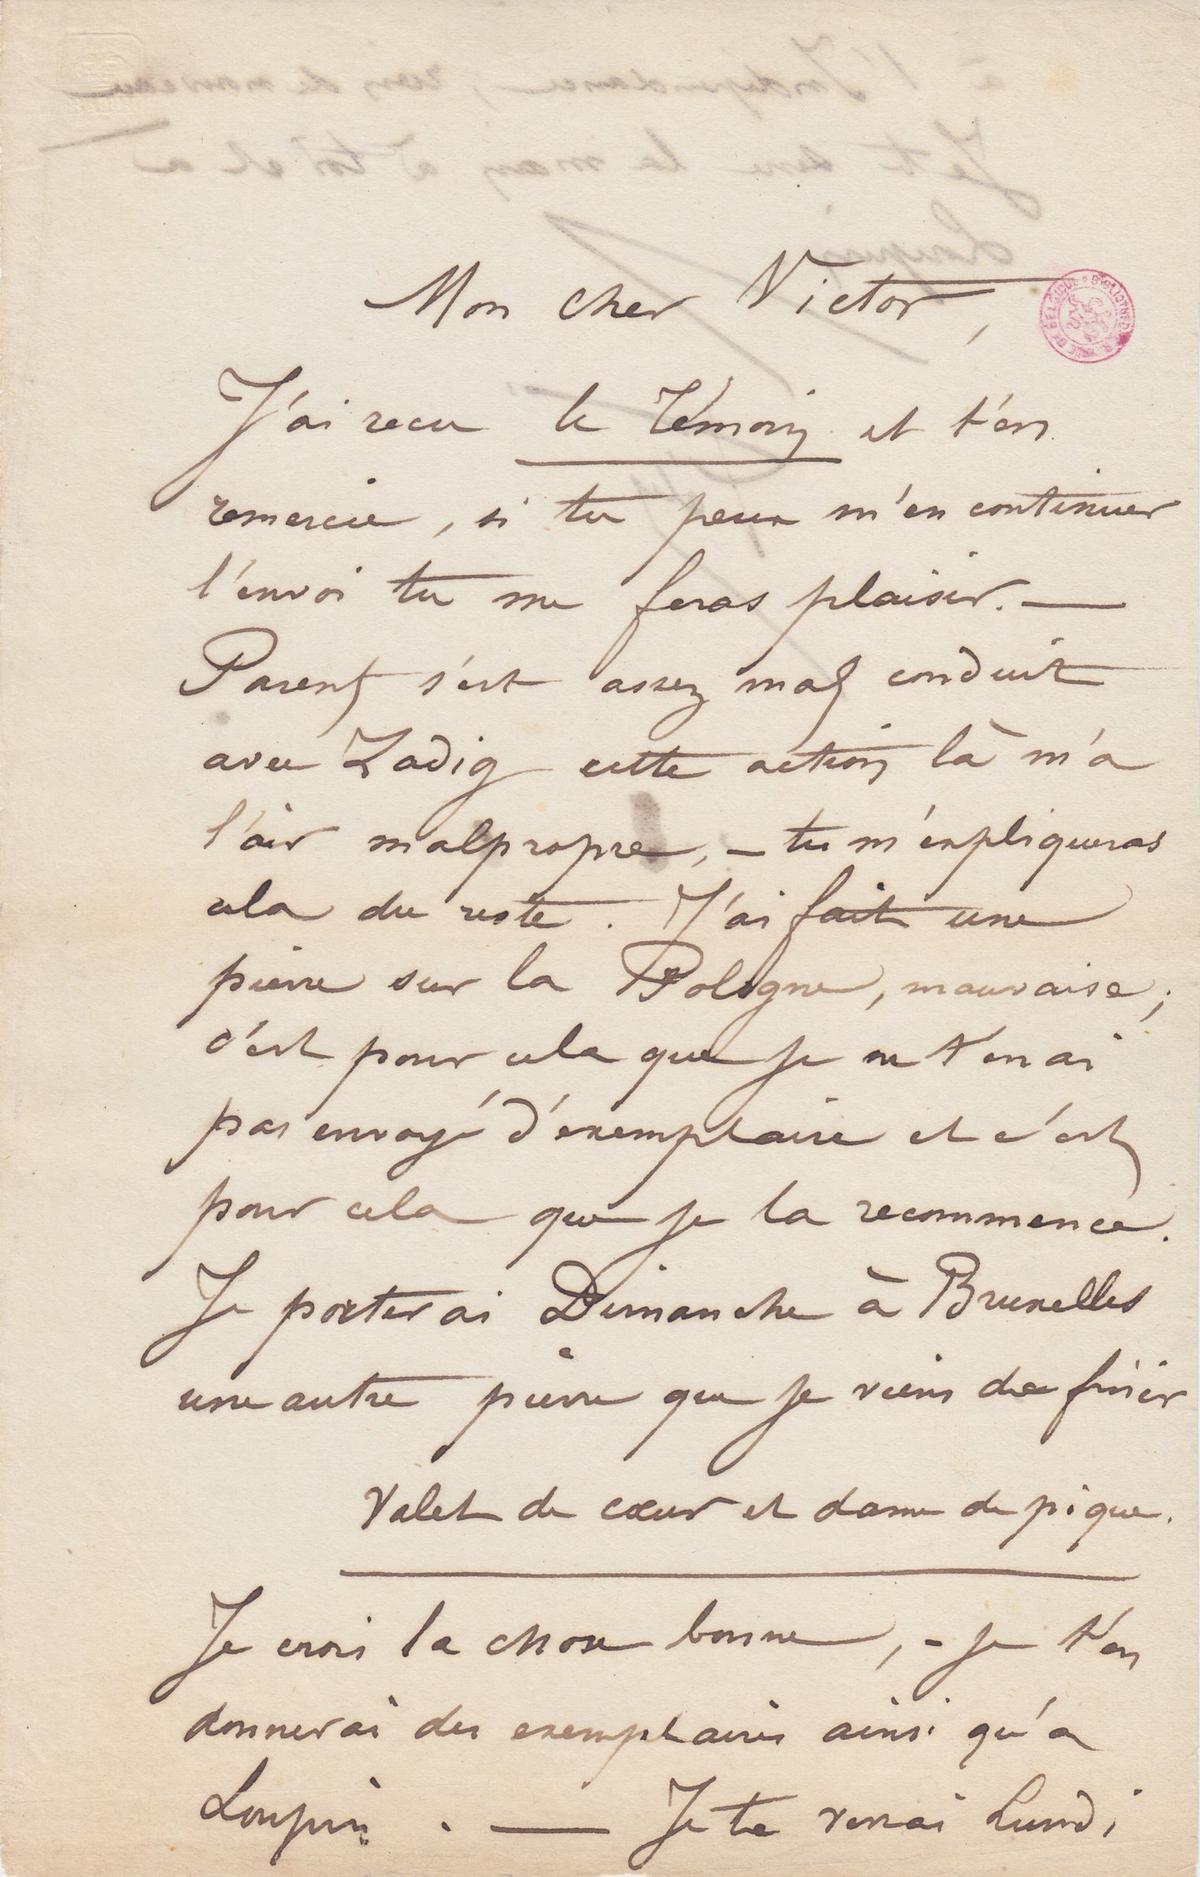 Mon cher Victor,
J'ai recu le Témoin et t'en
remercie, si tu peux m'en continuer
l'envoi tu me feras plaisir. —
Parent s'est assez mal conduit
avec Zadig cette action là m'a
l'air malpropre, — tu m'expliqueras
cela du reste. J'ai fait une
pierre sur la Pologne, mauvaise;
c'est pour cela que je ne t'en ai
pas envoyé d'exemplaire et c'est
pour cela que je la recommence.
Je porterai Dimanche à Bruxelles
une autre pierre que je viens de finir
Valet de cœur et dame de pique.
Je crois la chose bonne, - je t'en
donnerai des exemplaires ainsi qu'a
Loupin. — Je te verrai Lundi